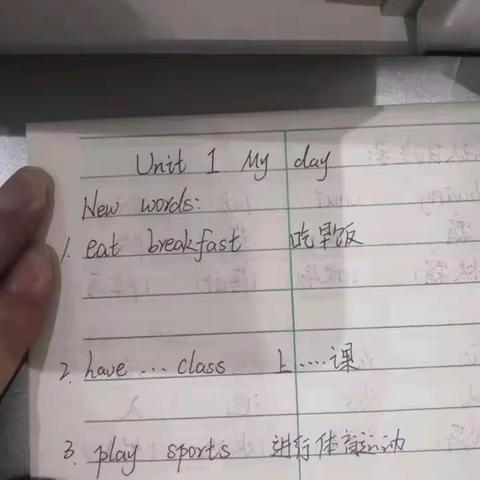 Unit 1 My day
New words:
1. eat breakfast 吃早饭
2. have ... class 上....课
3. play sports 进行体育运动